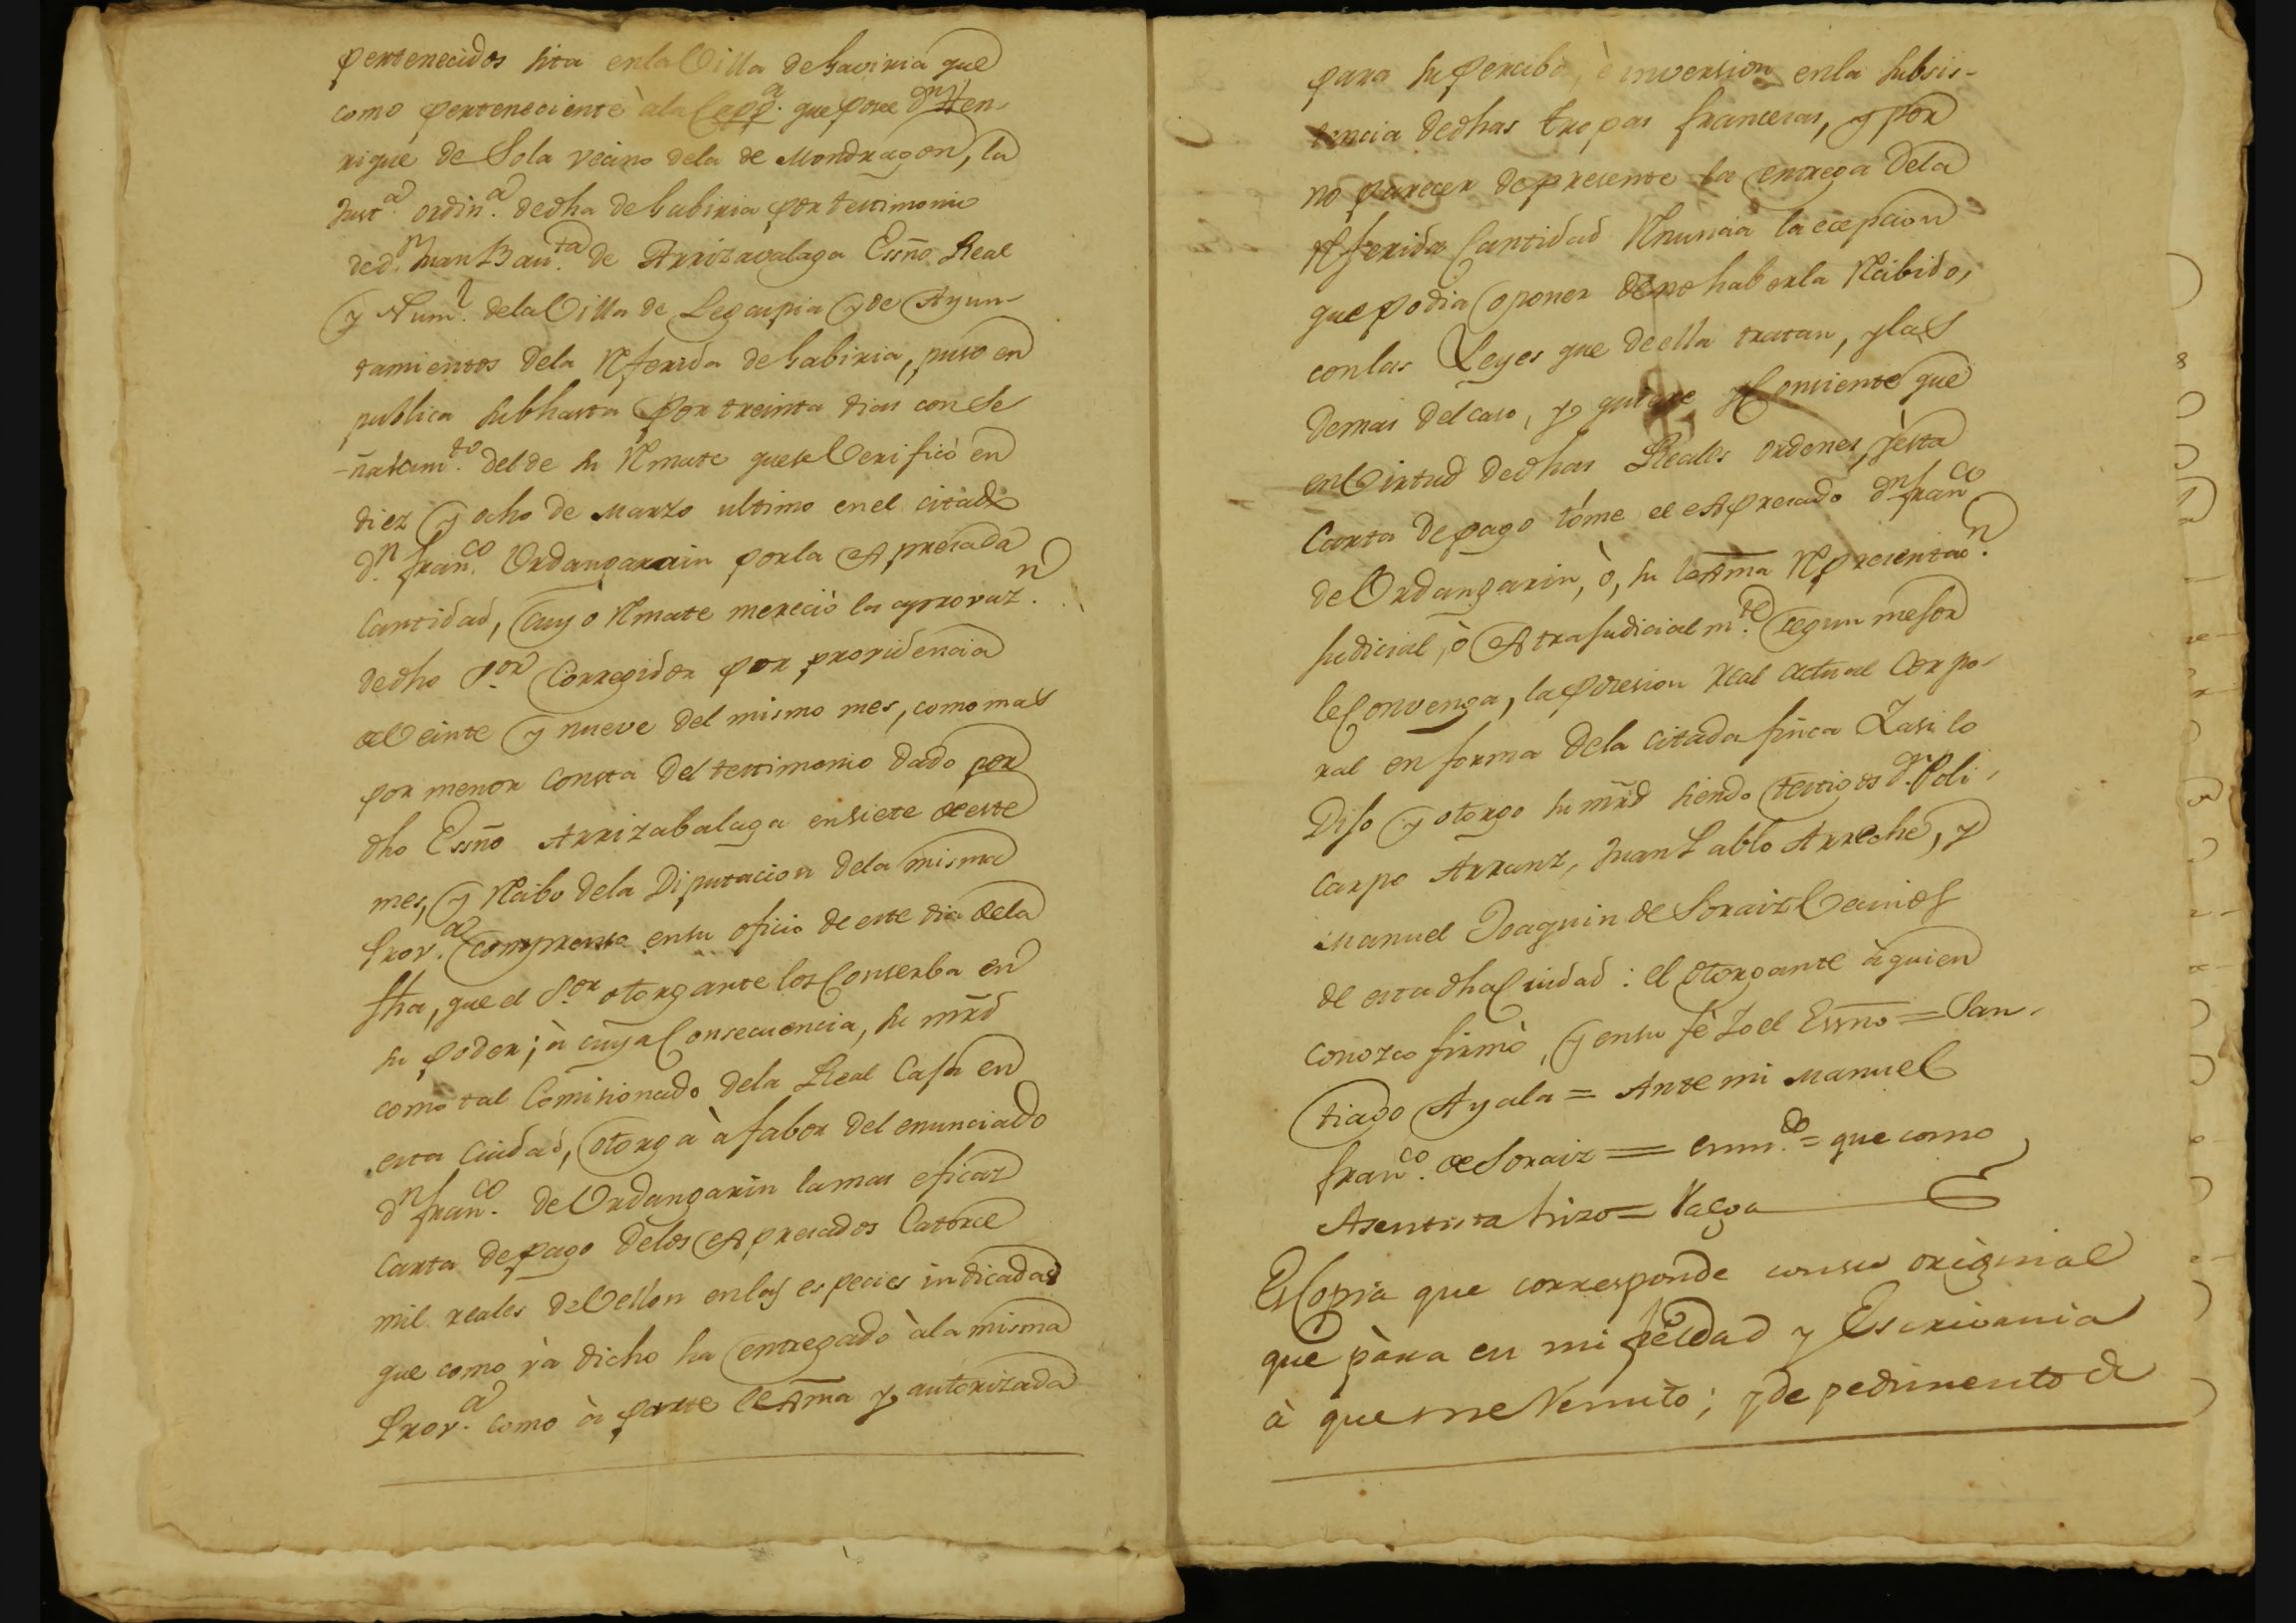 pertenecidos sita en la Villa de Gaviria que
como perteneciente à la Capp.ª que posee D.n Hen-
rique de Sola vecino de la de Mondragon, la
Just.ª ordin.ª de dha de Gabiria por testimonio
de d.n Juan Bau.ta de Arrizavalaga Essño Real
y Num.l de la Villa de Legazpia y de Ayun-
tamientos de la Referida de Gabiria, puso en
publica subhasta por treinta dias con Se
-ñalam.to del de su Remate que se Verificò en
diez y ocho de Marzo ultimo en el citado
d.n Fran.co Urdangarain por la Expresada
Cantidad, cuyo Remate mereciò la aprovaz.n
de dho S.or Corregidor por providencia
de Veinte y nueve del mismo mes, como mas
por menor consta del testimonio dado por
dho Essño Arrizabalaga en siete de este
mes, y Recibo de la Diputacion de la misma
Prov.ª compreso en su oficio de este dia de la
fha, que el S.or otorgante los Conserba en
su poder; à cuya Consecuencia, su mrd
como tal Comisionado de la Real Caja en
esta Ciudad, otorga à fabor del enunciado
d.n Fran.co de Urdangarin la mas eficaz
Carta de pago de los Expresados Catorce
mil reales de Vellon en las especies indicadas
que como và dicho ha entregado à la misma
Prov.ª como à parte lexma y autorizada
para su percibo, è inversion en la subsis-
tencia de dhas tropas francesas, y por
no parecer de presente la entrega de la
Referida Cantidad Renuncia la ecepcion
que podia oponer de no haberla Recibido,
con las Leyes que de ella tratan, y las
demas del caso, y quiere y Consiente que
en Virtud de dhas Reales ordenes, y esta
Carta de pago tóme el Expresado d.n Fran.co
de Urdangarin, ò, su lexma Representac.n
Judicial, ò Extrajudicialm.te segun mejor
le Convenga, la posesion real actual Corpo-
ral en forma de la citada finca I asi lo
Dijo y otorgo su mrd siendo testigos d.n Poli-
carpo Arranz, Juan Pablo Arreche, y
Manuel Joaquin de Soraiz Vecinos
de esta dha Ciudad: el otorgante à quien
conozco firmò, y en su fè Io el Essno = San-
tiago Ayala = Ante mi Manuel
Fran.co de Soraiz = enm.do = que como
Asentista hizo = Valga
Es Copia que corresponde con su original
que pàra en mi fieldad y Escrivania
à que me Remito; y de pedimento de